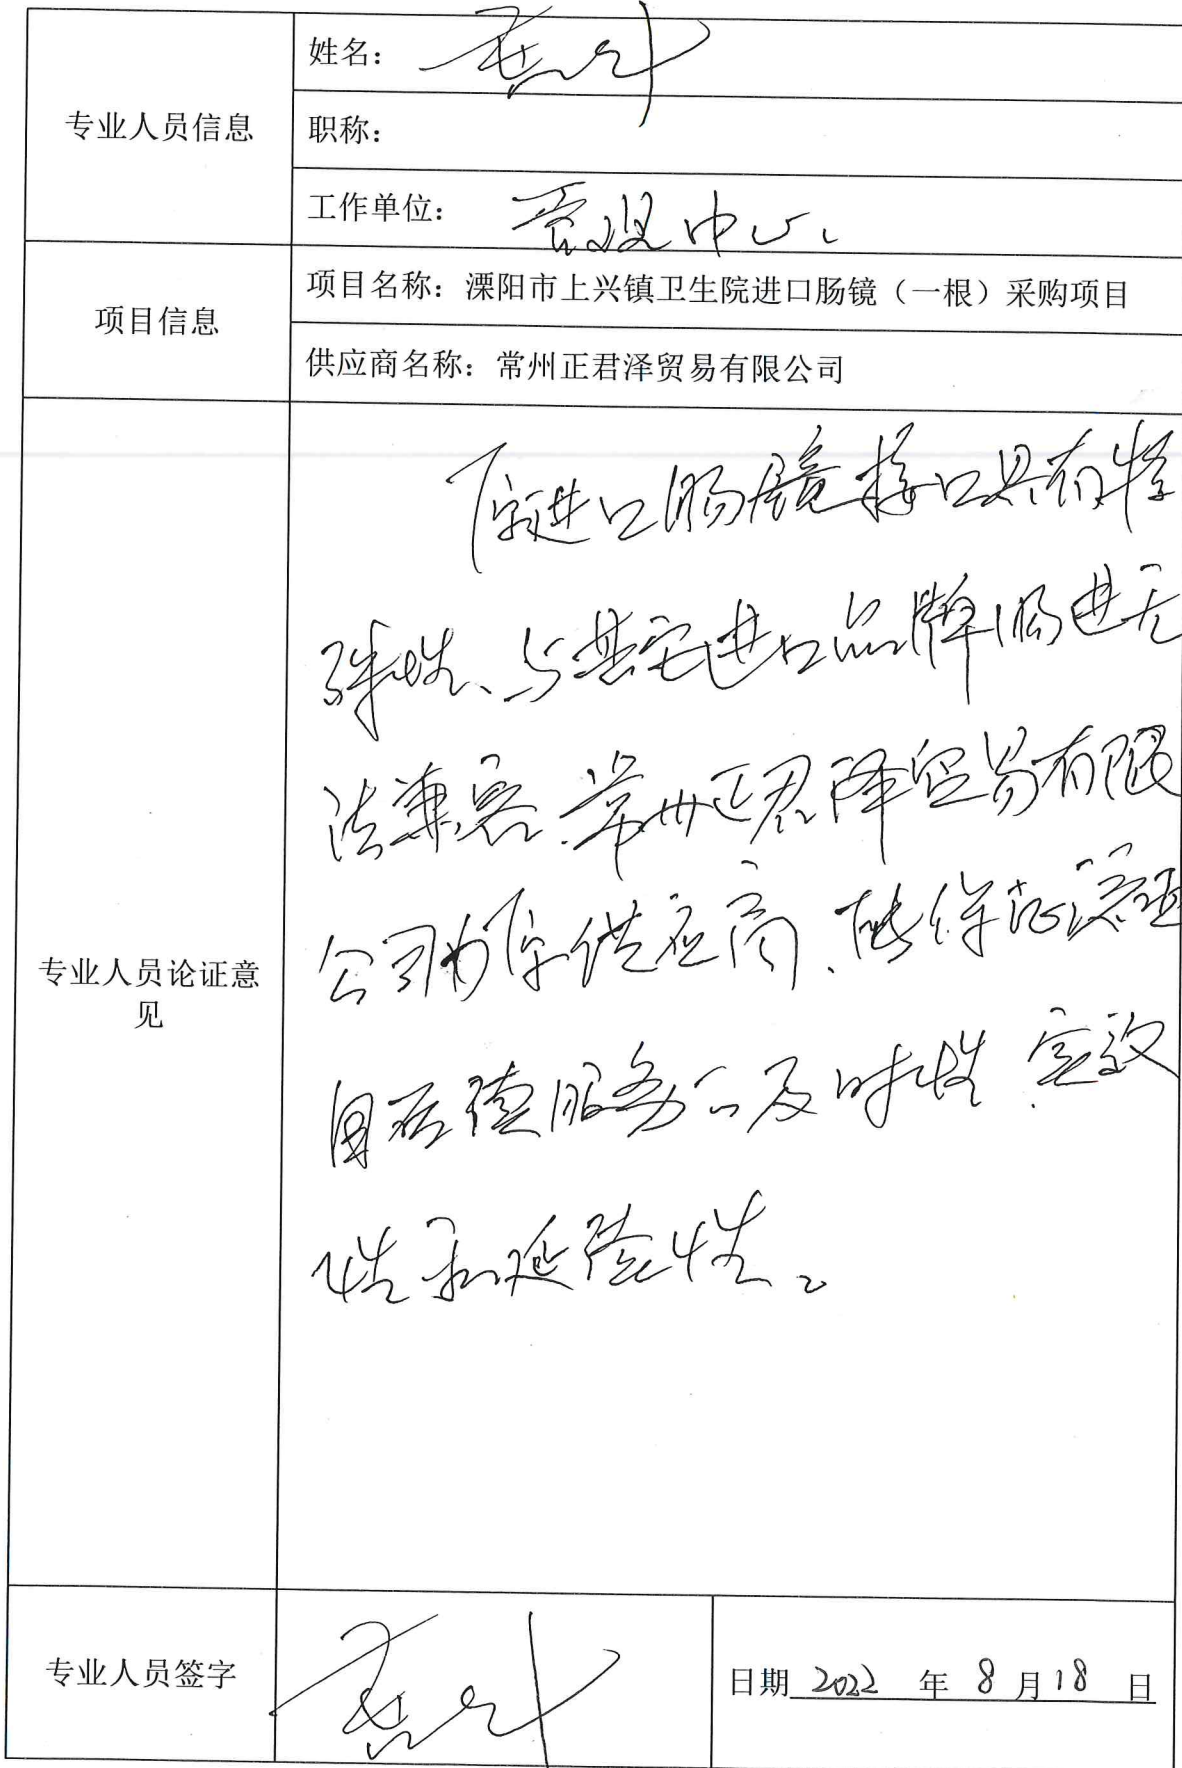 专业人员信息
姓名：
职称：
工作单位： 中心
项目信息
项目名称：溧阳市上兴镇卫生院进口肠镜（一根）采购项目
供应商名称：常州正君泽贸易有限公司
专业人员论证意
见
原进口肠镜接口具有特
殊性、与其它进口品牌肠进无
法兼容.常州正君泽贸易有限
公司为原供应商、能保证该项
目后续服务的及时性.实效
性和延续性。
专业人员签字
日期 2022 年 8 月 18 日